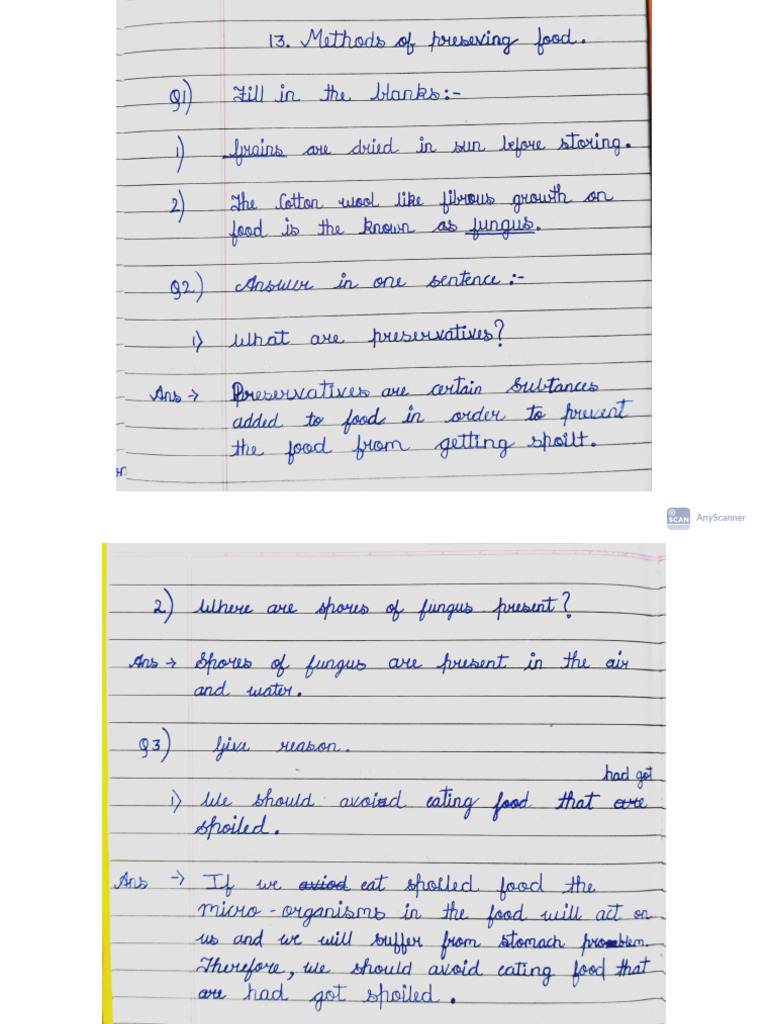 13. Methods of preseving food.
Q1) Fill in the blanks:-
1) Grains are dried in sun before storing.
2) The Cotton wool like fibrous growth on
food is the known as fungus.
Q2) Answer in one sentence:-
1) What are preservatives?
Ans → Preservatives are certain Subtances
added to food in order to prevent
the food from getting spoilt.
on
SCAN AnyScanner
2) Where are spores of fungus present?
Ans → Spores of fungus are present in the air
and water.
Q3) Give reason.
had got
1) We should avoid eating food that are
spoiled.
Ans → If we aviod eat spoiled food the
micro-organisms in the food will act on
us and we will suffer from stomach problem.
Therefore, we should avoid eating food that
are had got spoiled.